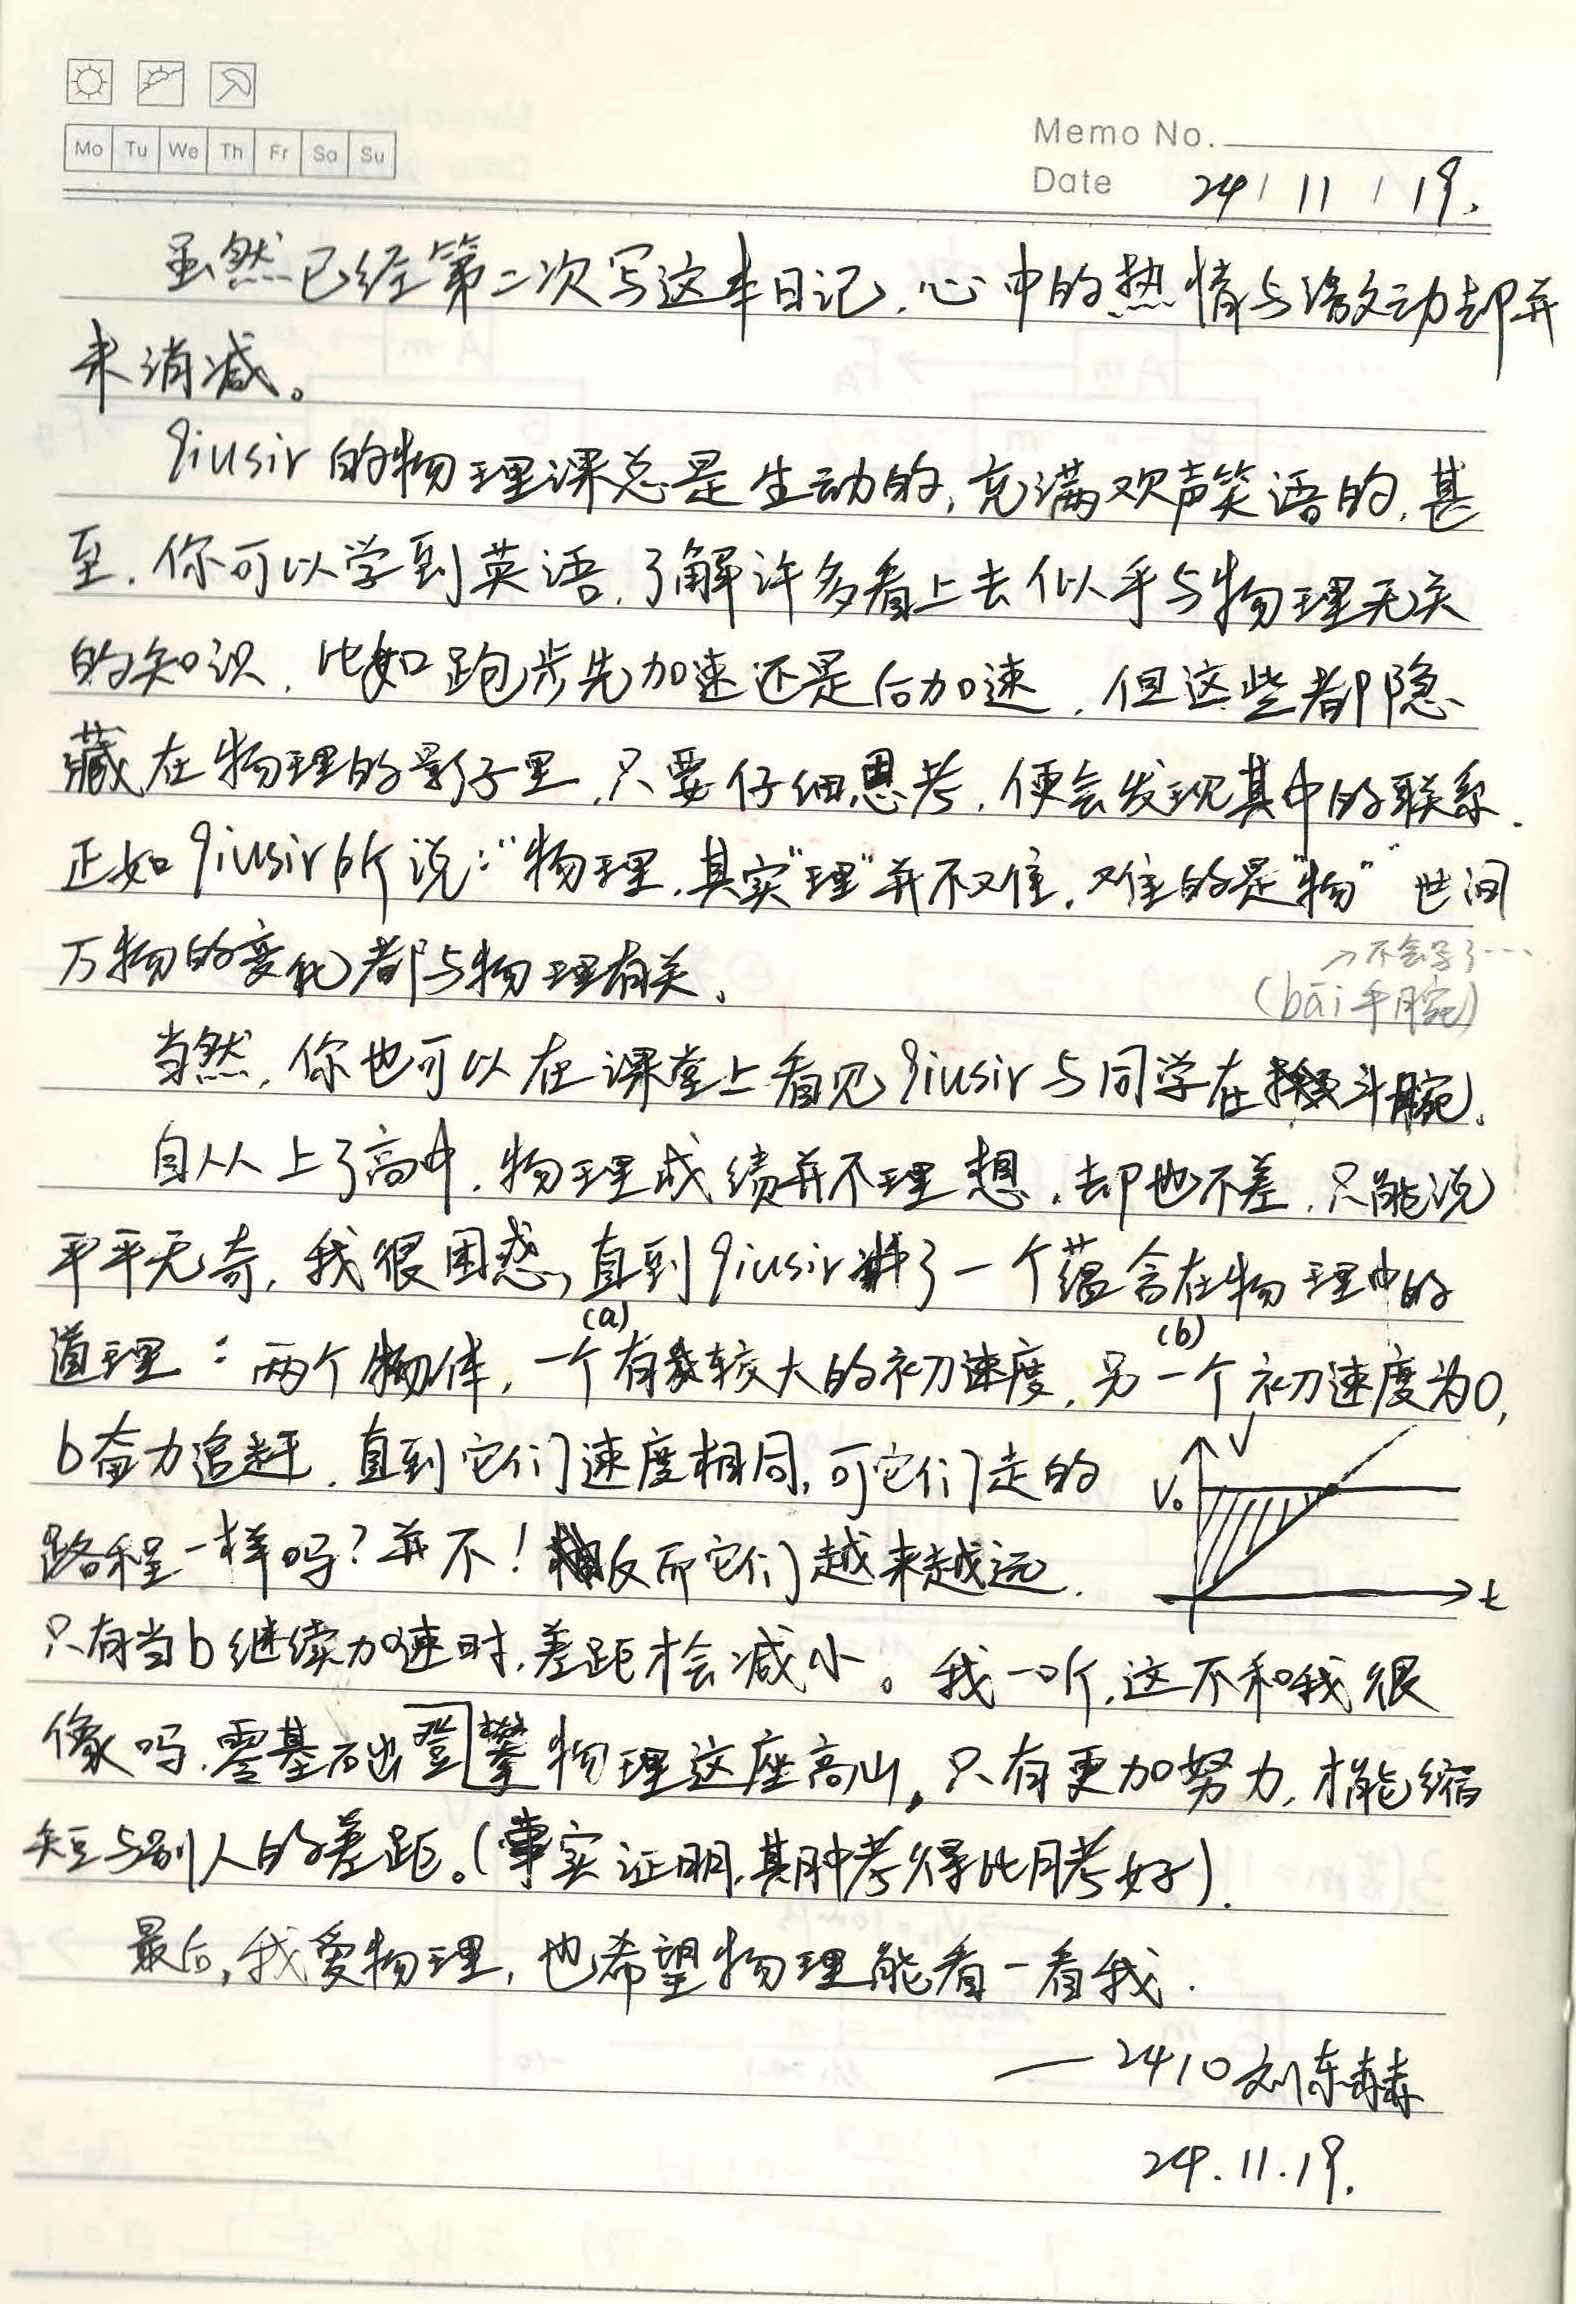 Mo Tu We Th Fr Sa Su
Memo No.
Date 24/11/19.
虽然已经第二次写这本日记，心中的热情与激动却并
未消减。
qiusir的物理课总是生动的，充满欢声笑语的，甚
至，你可以学到英语，了解许多看上去似乎与物理无关
的知识，比如跑步先加速还是后加速，但这些都隐
藏在物理的影子里，只要仔细思考，便会发现其中的联系.
正如qiusir所说：“物理，其实“理”并不难，难的是“物””世间
万物的变化都与物理有关。
→不会写了…
(bāi手腕)
当然，你也可以在课堂上看见qiusir与同学在斗腕.
自从上了高中，物理成绩并不理想，却也不差，只能说
平平无奇，我很困惑，直到qiusir讲了一个蕴含在物理中的
(a) (b)
道理：两个物体，一个有较大的初速度，另一个初速度为0,
b奋力追赶，直到它们速度相同，可它们走的
V
V₀
路程一样吗？并不！反而它们越来越远.
t
只有当b继续加速时，差距才会减小。我一听，这不和我很
像吗，零基础登攀物理这座高山，只有更加努力，才能缩
短与别人的差距。(事实证明，期中考得比月考好).
最后，我爱物理，也希望物理能看一看我.
—2410 刘东
24.11.19.